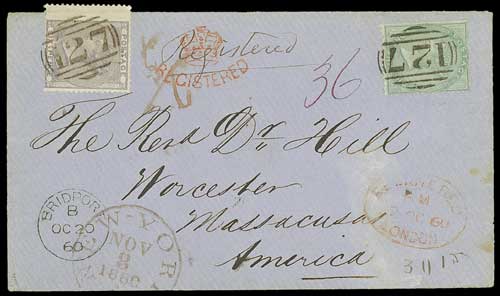 127
POSTAG
Registered
REGISTERED
127
36
The Revd Dr. Hill
Worcester
Massacusas
America
BRIDPORT
B
OC 20
60
NEW-YORK
NOV
8
1860
OC 60
LONDON